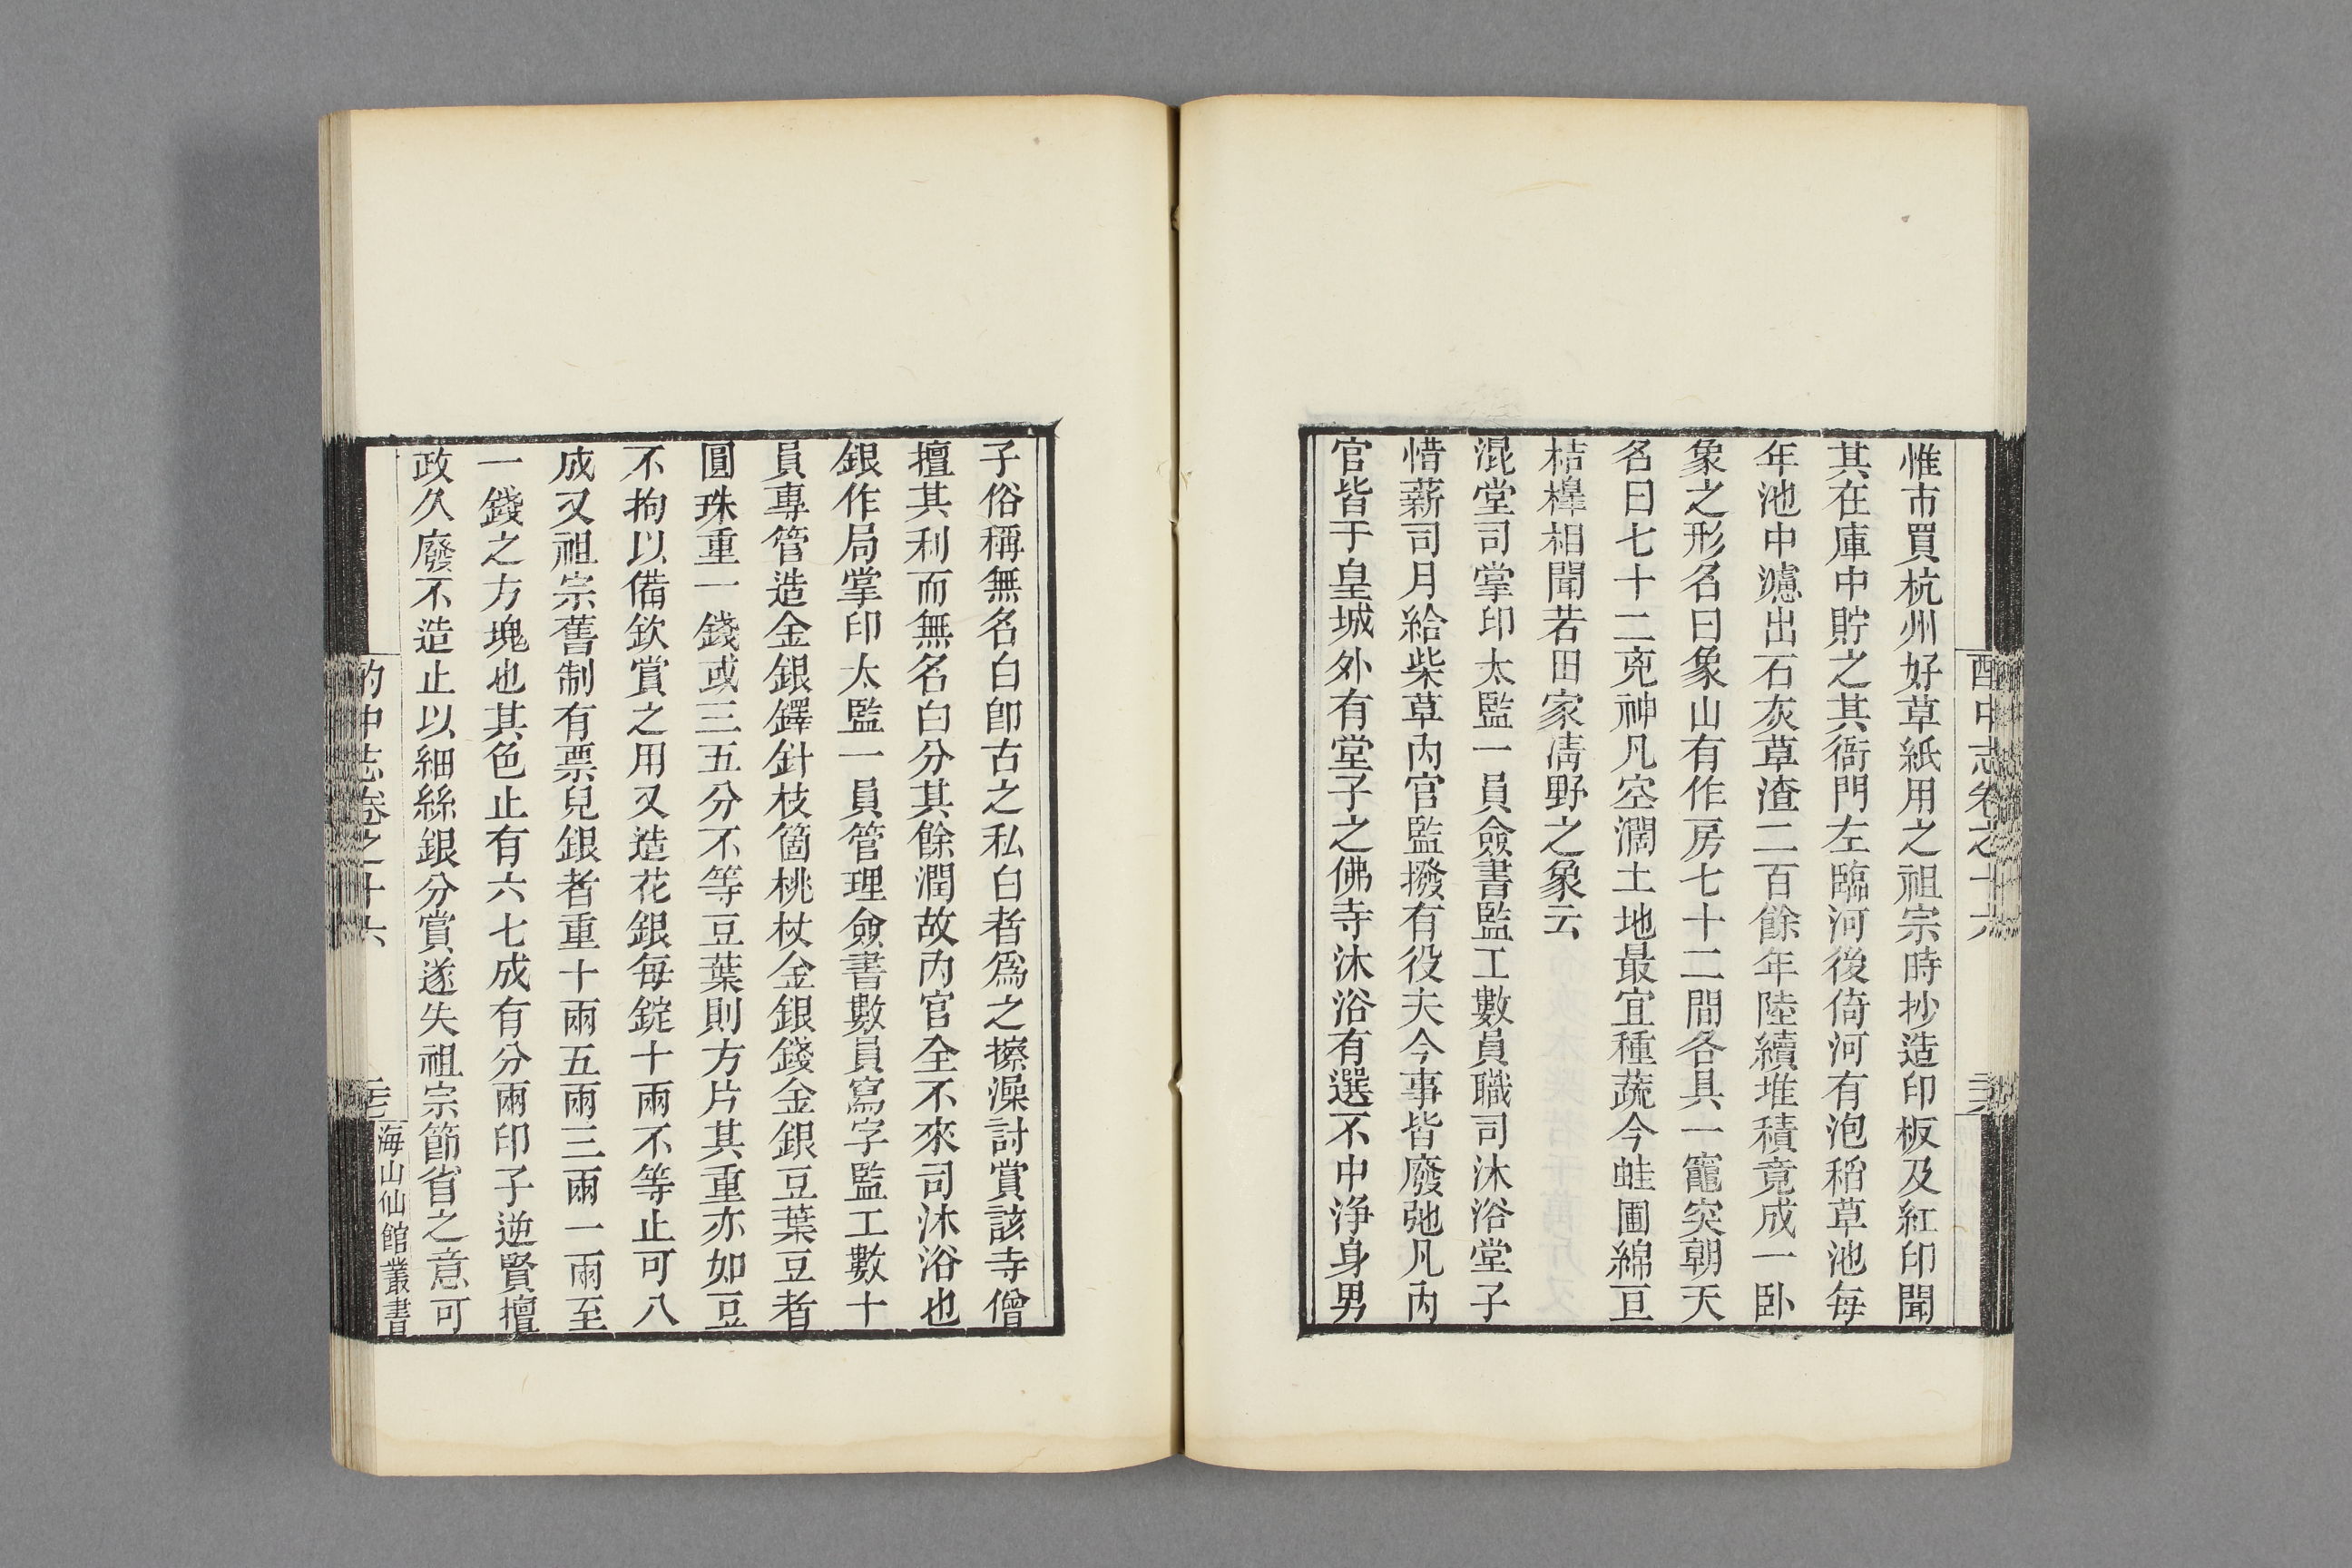 酌中志卷之十六
惟市買杭州好草紙用之祖宗時抄造印板及紅印聞
其在庫中貯之其衙門左臨河後倚河有泡稻草池每
年池中濾出石灰草渣二百餘年陸續堆積竟成一卧
象之形名曰象山有作房七十二間各具一竈突朝天
名曰七十二兇神凡空濶土地最宜種蔬今蛙圃綿亘
桔槔相聞若田家淸野之象云
混堂司掌印太監一員僉書監工數員職司沐浴堂子
惜薪司月給柴草內官監撥有役夫今事皆廢弛凡內
官皆于皇城外有堂子之佛寺沐浴有選不中淨身男
子俗稱無名白卽古之私白者爲之擦澡討賞該寺僧
擅其利而無名白分其餘潤故內官全不來司沐浴也
銀作局掌印太監一員管理僉書數員寫字監工數十
員專管造金銀鐸針枝箇桃杖金銀錢金銀豆葉豆者
圓珠重一錢或三五分不等豆葉則方片其重亦如豆
不拘以備欽賞之用又造花銀每錠十兩不等止可八
成又祖宗舊制有票兒銀者重十兩五兩三兩一兩至
一錢之方塊也其色止有六七成有分兩印子逆賢擅
政久廢不造止以細絲銀分賞遂失祖宗節省之意可
酌中志卷之十六
海山仙館叢書